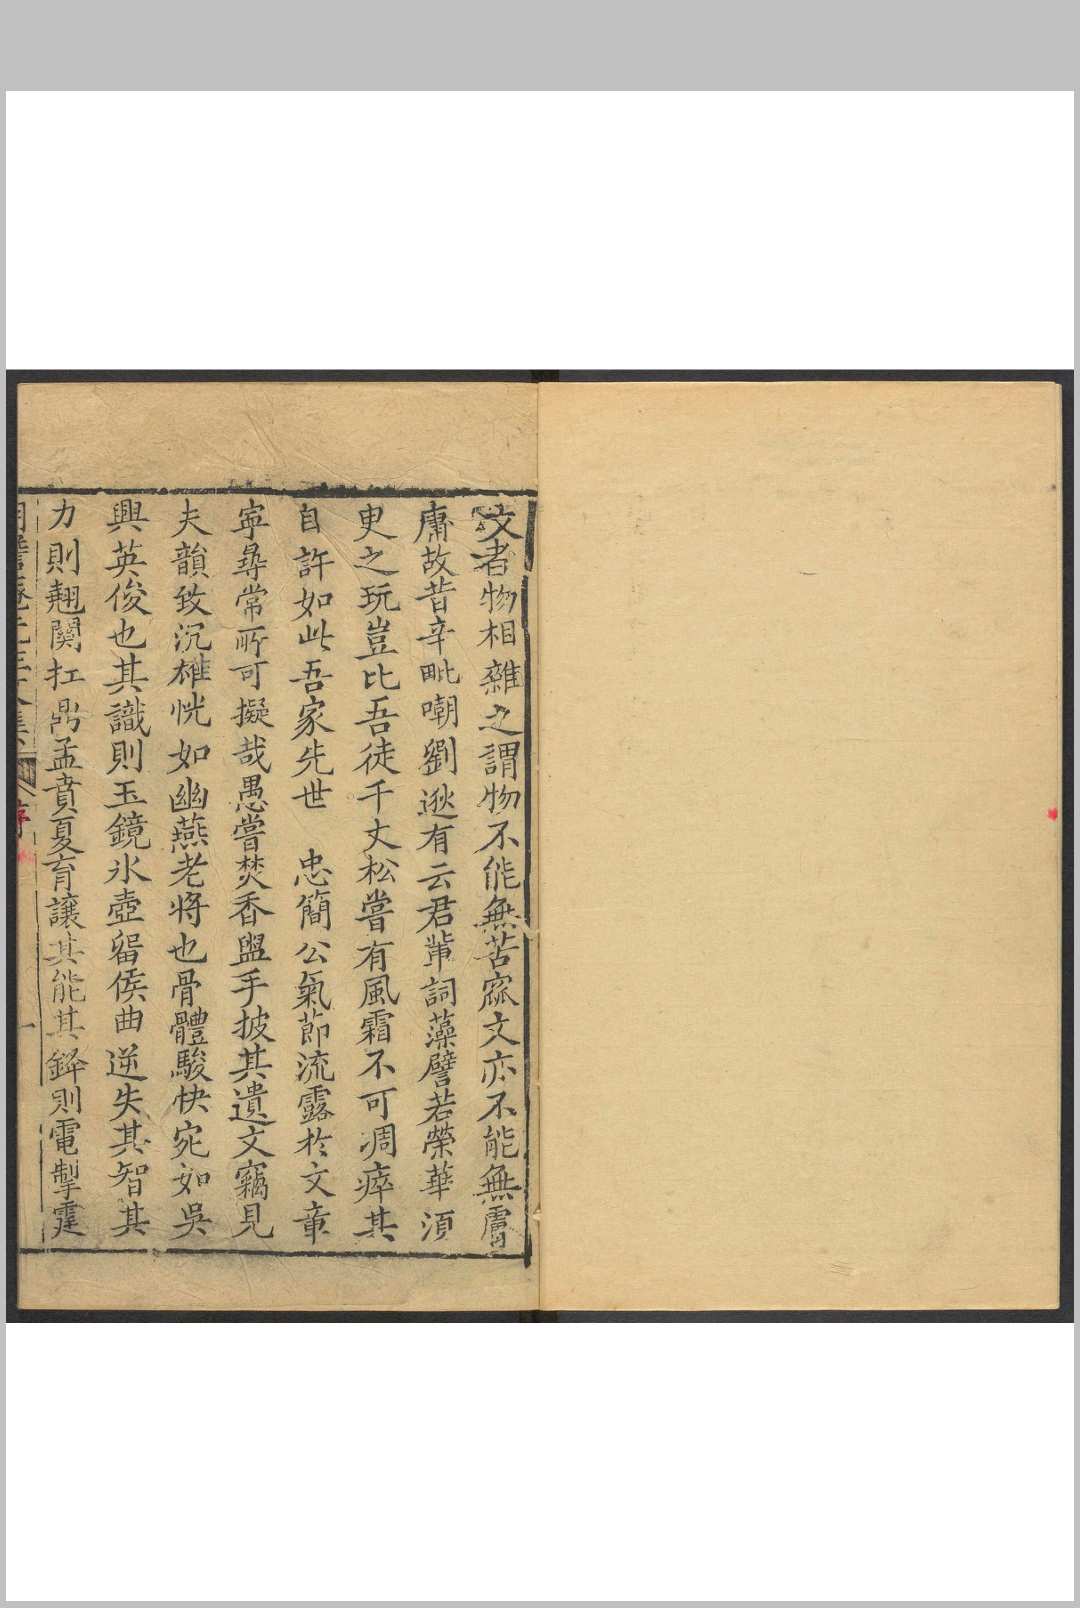 文者物相雜之謂物不能無苦窳文亦不能無膚
庸故昔辛毗嘲劉逖有云君軰詞藻譬若榮華湏
臾之玩豈比吾徒千丈松嘗有風霜不可凋瘁其
自許如此吾家先世　忠簡公氣節流露於文章
寧尋常所可擬哉愚嘗焚香盥手披其遺文竊見
夫韻致沉雄恍如幽燕老將也骨體駿快宛如吳
興英俊也其識則玉鏡氷壺留侯曲逆失其智其
力則翹關扛鼎孟賁夏育讓其能其鋒則電掣霆
序
一